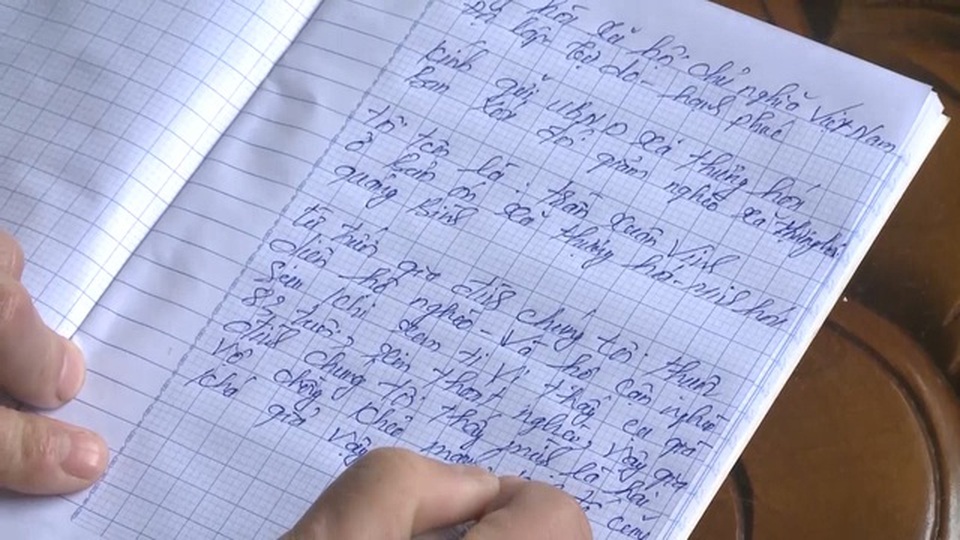 hội xã hội chủ nghĩa Việt Nam
Độc lập tự do - hạnh phúc
Kính gửi UBND xã thượng hóa
Ban xóa đói giảm nghèo xã thượng hóa
tôi tên là: trần xuân Vinh
ở bản ón xã thượng hóa - minh hóa
quảng Bình
từ trước gia đình chúng tôi thuộc
diện hộ nghèo - Và hộ cận nghèo
Sau khi xem ti vi thấy cụ già
83 tuổi xin thoát nghèo, vậy gia
đình chúng tôi thấy mình là hai
vợ chồng khỏe
khá giả vậy